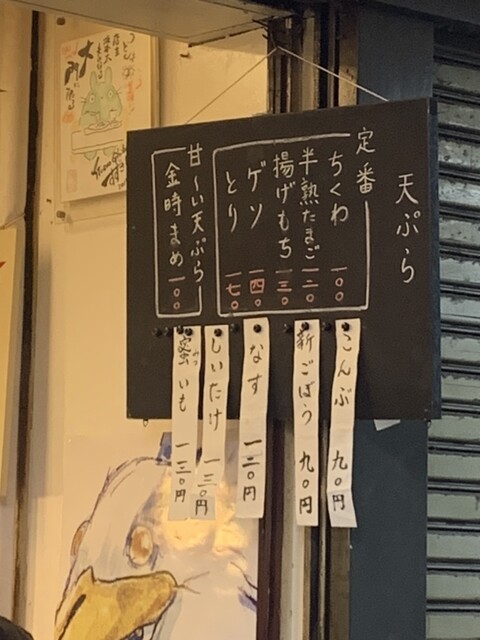 天ぷら
定番
ちくわ 一〇〇
半熟たまご 一二〇
揚げもち 一三〇
ゲソ 一四〇
とり 一七〇
甘〜い天ぷら
金時まめ 一〇〇
こんぶ 九〇円
新ごぼう 九〇円
なす 一二〇円
しいたけ 一三〇円
蜜いも 一三〇円